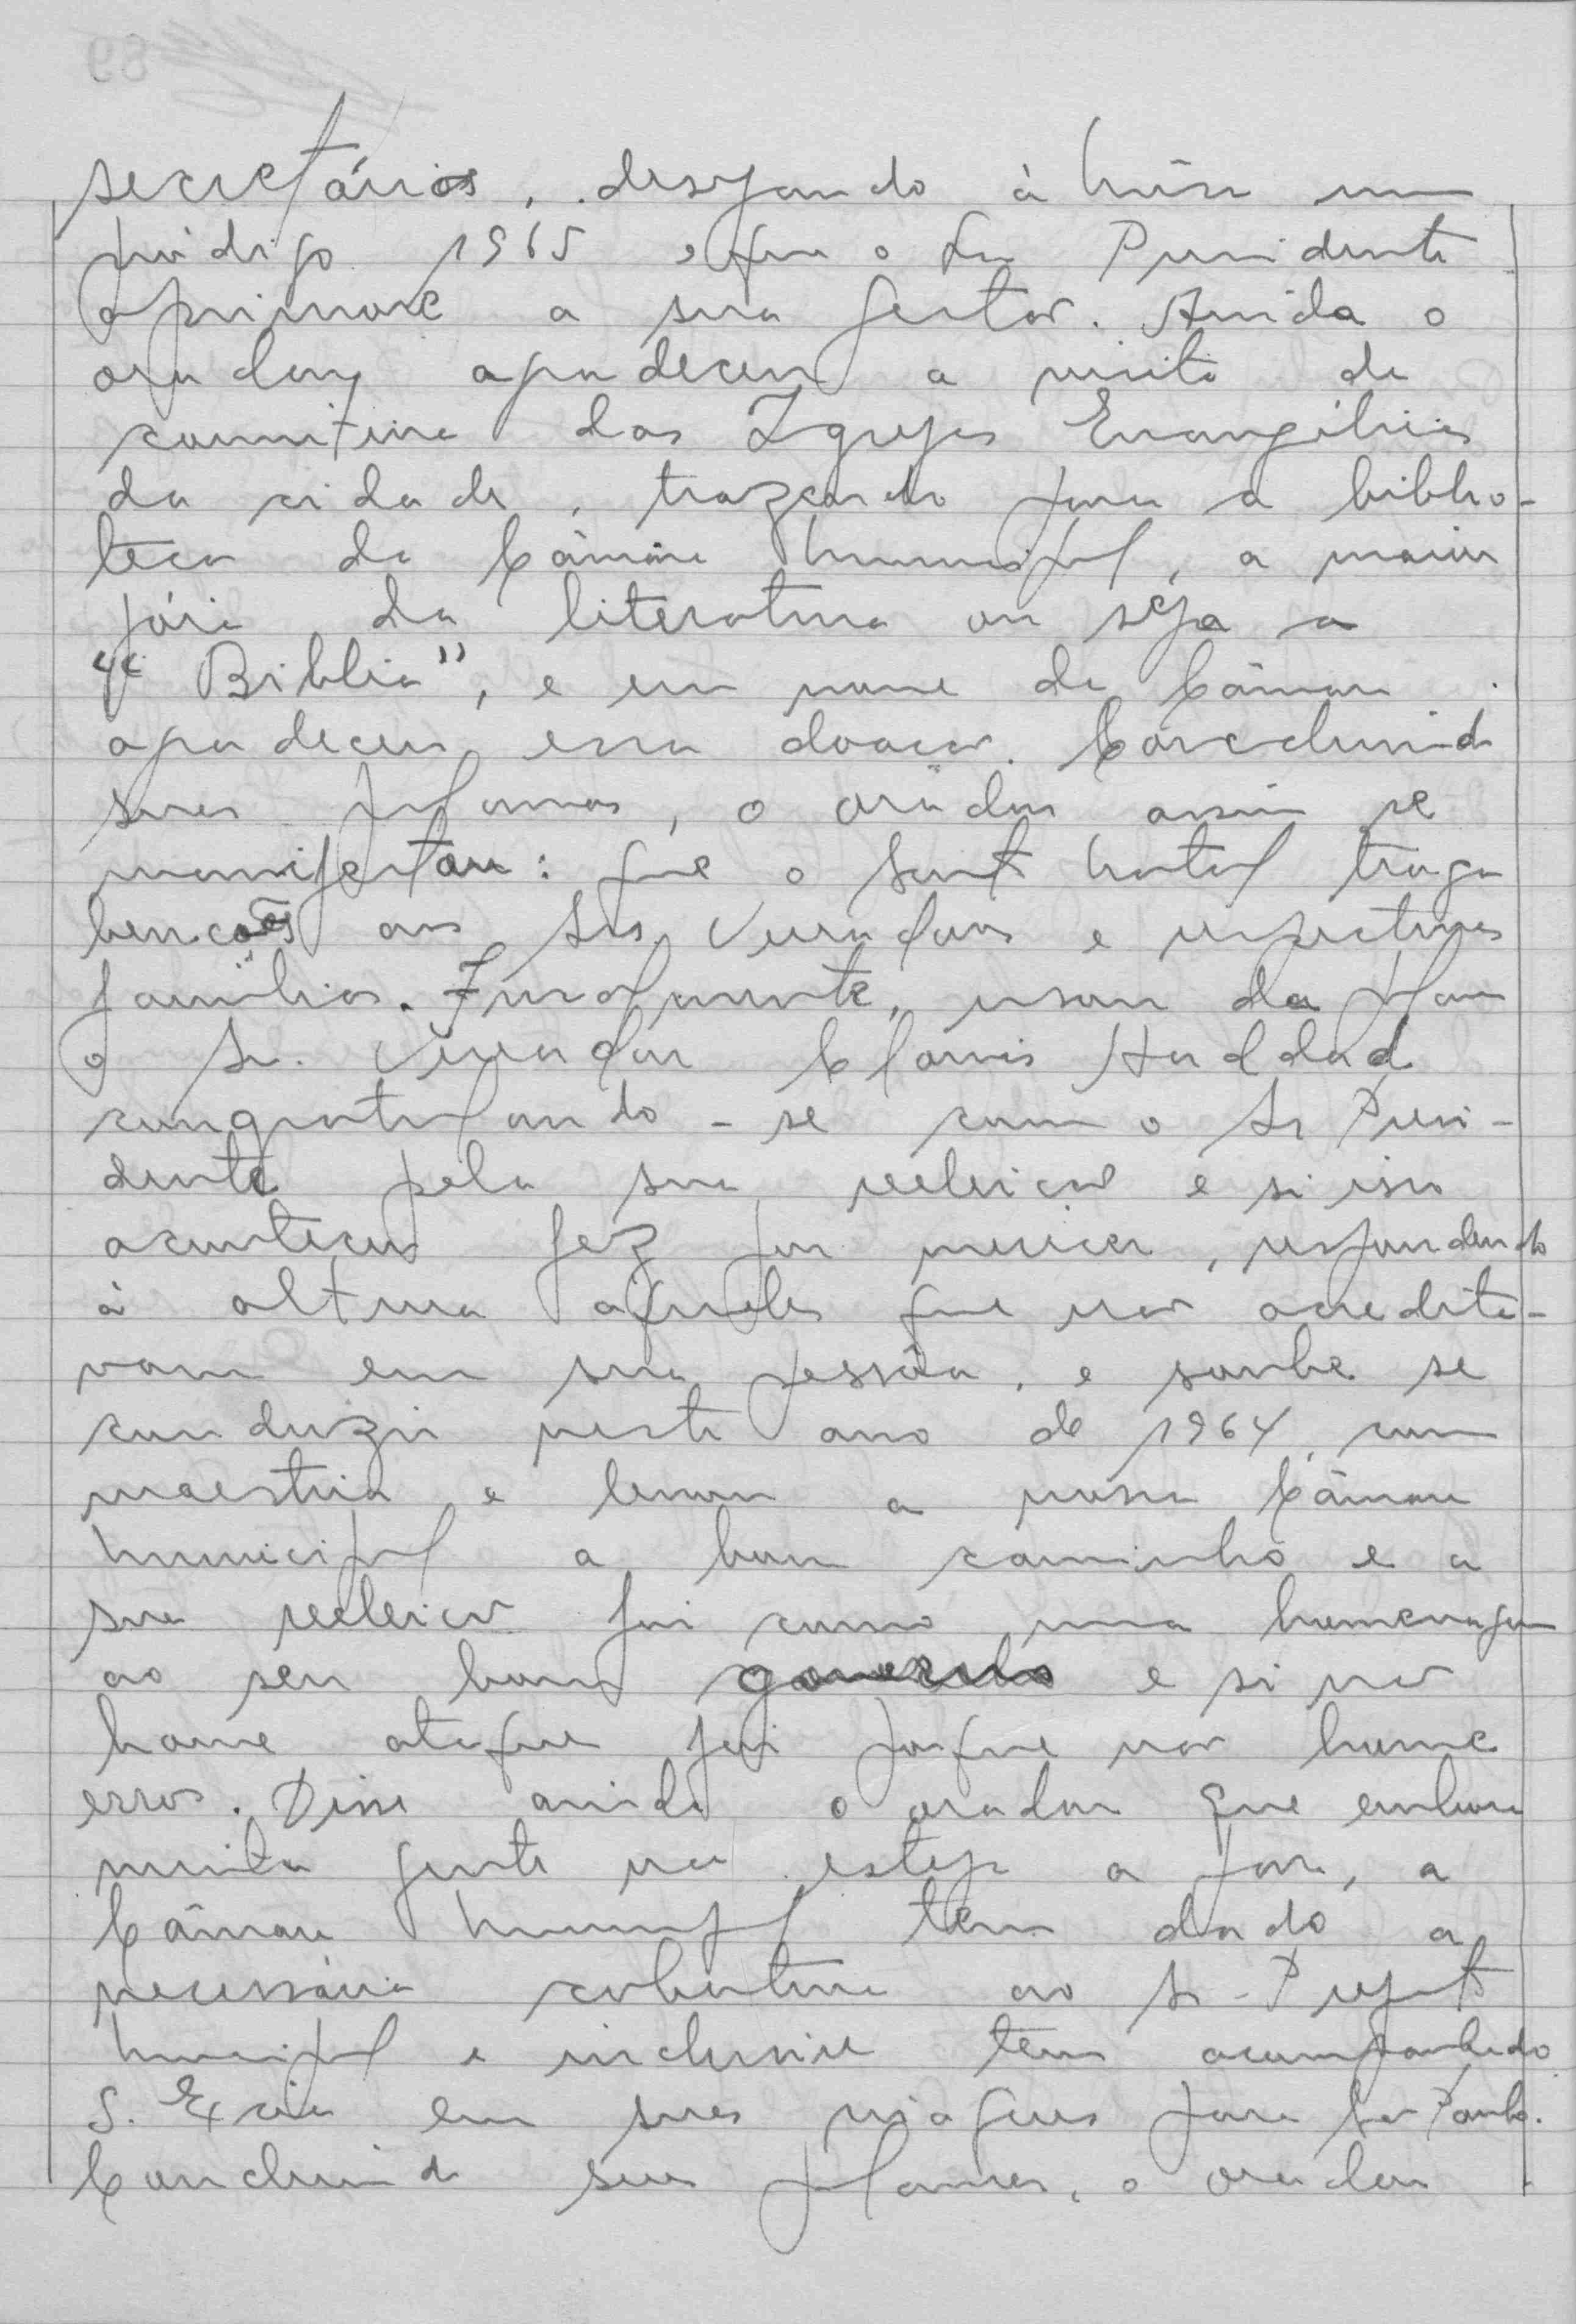 secretários, desejando à Mesa um
pródigo 1965 e que o Sr Presidente
aprimore a sua gestão. Ainda o
orador, agradeceu a visita da
comitiva das Igrejas Evangélicas
da cidade, trazendo para a biblio-
teca da Câmara Municipal, a maior
jóia da literatura ou seja a
"Biblia", e em nome da Câmara
agradeceu essa doação. Concluindo
suas palavras, o orador assim se
manifestou: que o Santo Natal traga
bençãos aos Srs. Vereadores e respectivas
familias. Finalmente, usou da palavra
o Sr. Vereador Clovis Haddad
congratulando-se com o Sr Presi-
dente pela sua reeleição e si isso
aconteceu fez por merecer, respondendo
à altura àqueles que não acredita-
vam em sua pessôa, e soube se
conduzir neste ano de 1964, com
maestria e levou a nossa Câmara
Municipal a bom caminho e a
sua reeleição foi como uma homenagem
ao seu bom governo e si não
houve ataque foi porque não houve
erros. Disse ainda o orador que embora
muita gente não esteja a par, a
Câmara Municipal tem dado a
necessária cobertura ao Sr. Prefeito
Municipal e inclusive tem acompanhado
S. Excia em suas viagens para São Paulo.
Concluindo suas palavras, o orador